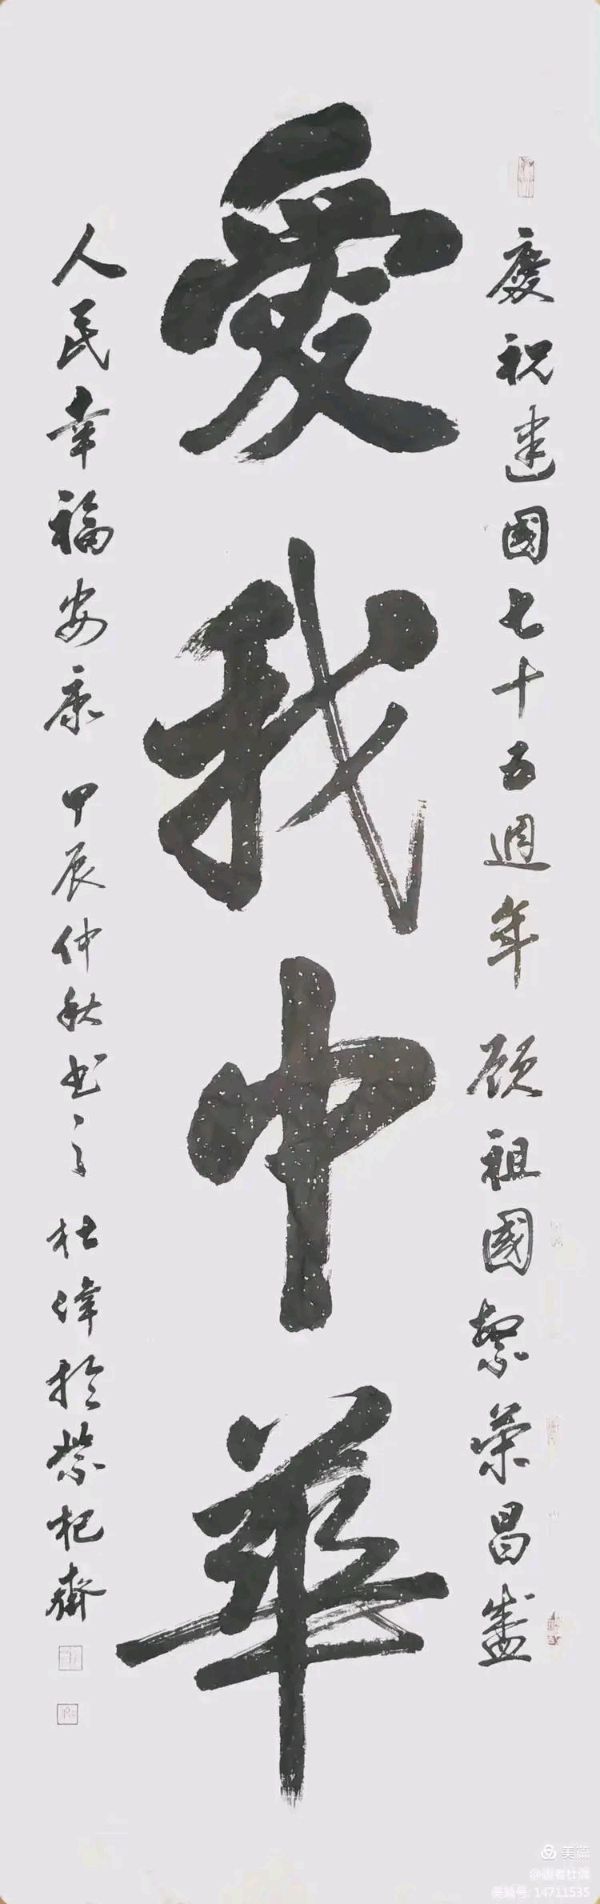 慶祝建國七十五週年 願祖國繁荣昌盛
愛我中華
人民幸福安康 甲辰仲秋书之 杜偉於紫杞齋
美篇
美篇号: 14711535